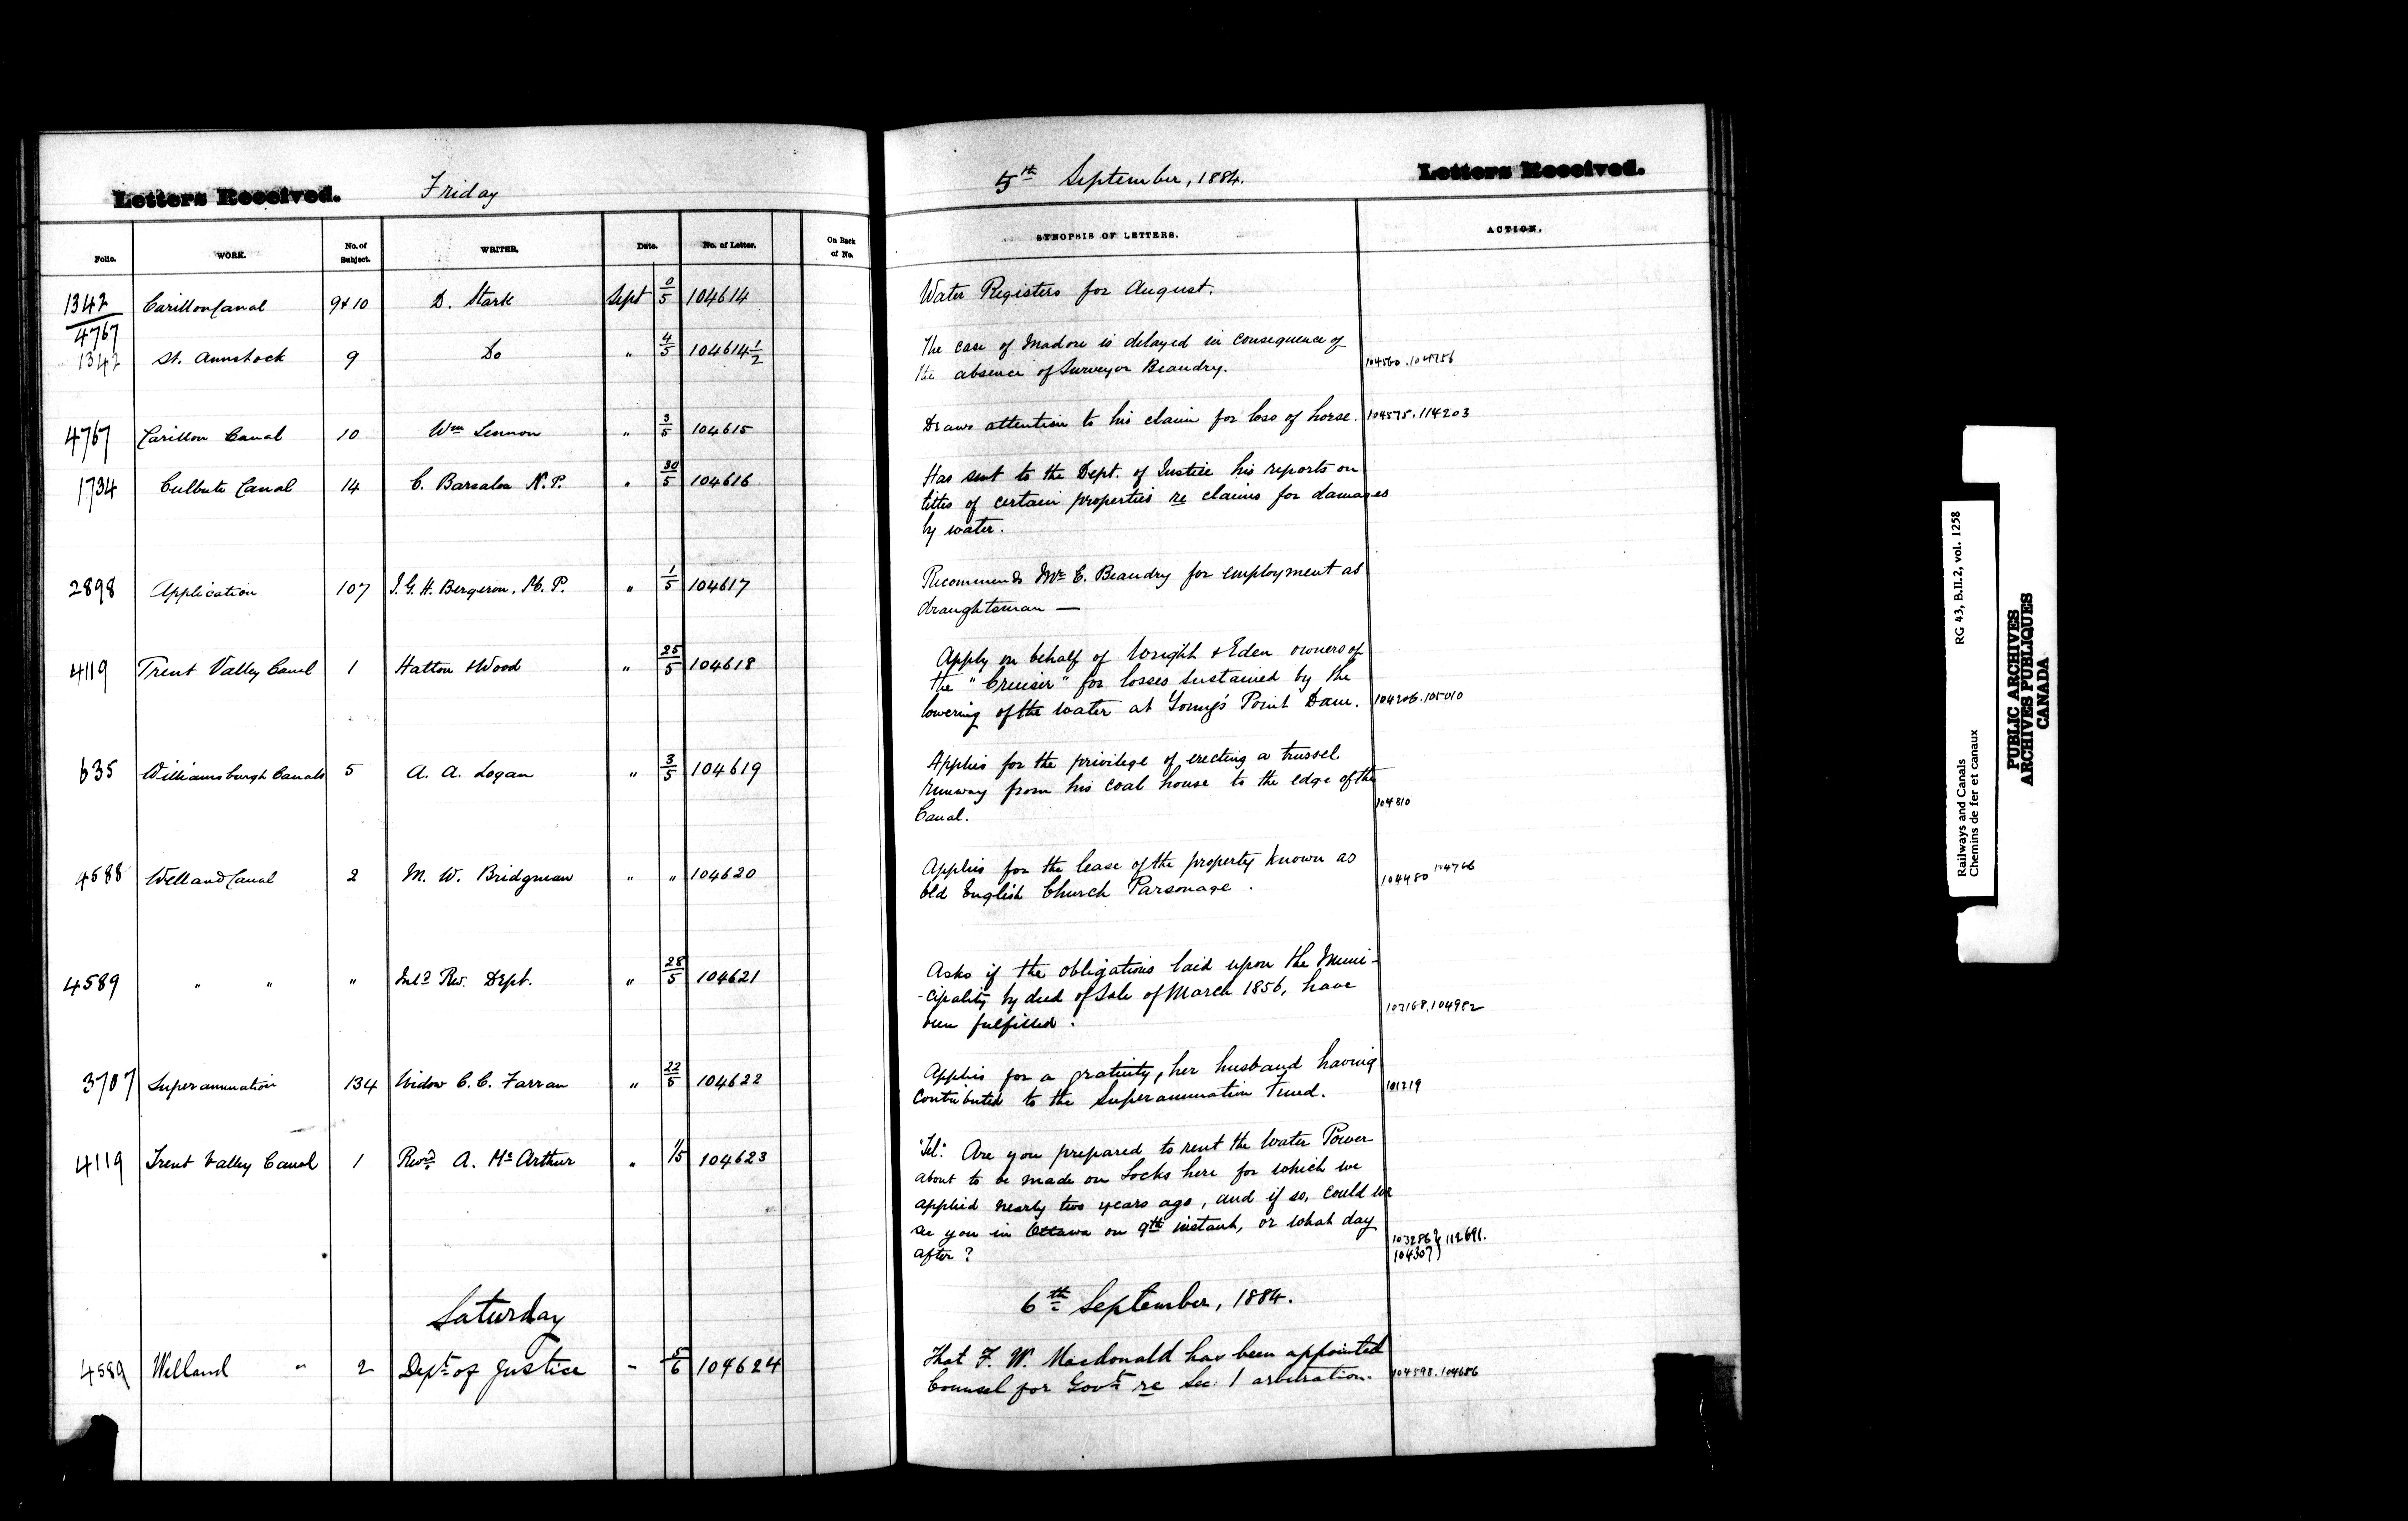 Letters Received.
Friday
5th September, 1884.
Letters Received.
Folio.
WORK.
No. of Subject.
WRITER.
Date.
No. of Letter.
On Back of No.
SYNOPSIS OF LETTERS.
ACTION.
1342
4767
Carillon Canal 9 & 10 D. Stark Sept 0/5 104614
Water Registers for August.
1342 St. Anns Lock 9 Do " 4/5 104614 1/2
The case of Madore is delayed in consequence of
the absence of Surveyor Beaudry.
104560. 104756
4767 Carillon Canal 10 Wm Lennon " 3/5 104615
Draws attention to his claim for loss of horse. 104575. 114203
1734 Culbute Canal 14 C. Barsalou N.P. " 30/5 104616
Has sent to the Dept. of Justice his reports on
titles of certain properties re claims for damages
by water.
2898 Application 107 J.G.H. Bergeron, M.P. " 1/5 104617
Recommends Mr. E. Beaudry for employment as
draughtsman —
4119 Trent Valley Canal 1 Hatton & Wood " 25/5 104618
Apply on behalf of Wright & Eden owners of
the "Cruiser" for losses sustained by the
lowering of the water at Young's Point Dam. 104206. 105010
635 Williamsburgh Canals 5 A. A. Logan " 3/5 104619
Applies for the privilege of erecting a trussel
runway from his coal house to the edge of the
Canal.
104810
4588 Welland Canal 2 M. W. Bridgman " " 104620
Applies for the lease of the property known as
Old English Church Parsonage.
104480 104766
4589 " " " Inld Rev. Dept. " 28/5 104621
Asks if the obligations laid upon the Muni-
-cipality by deed of Sale of March 1856, have
been fulfilled.
103168. 104982
3707 Superannuation 134 Widow C. C. Farran " 22/5 104622
Applies for a gratuity, her husband having
contributed to the Superannuation Fund.
101219
4119 Trent Valley Canal 1 Revd A. McArthur " 1/5 104623
"Tel." Are you prepared to rent the Water Power
about to be made on Locks here for which we
applied nearly two years ago, and if so, could we
see you in Ottawa on 9th instant, or what day
after?
103286 } 112691.
104307
Saturday
6th September, 1884.
4589 Welland " 2 Dept of Justice " 5/6 104624
That F. W. Macdonald has been appointed
Counsel for Govt re Sec. 1 arbitration.
104598. 104686
Railways and Canals RG 43, B.II.2, vol. 1258
Chemins de fer et canaux
PUBLIC ARCHIVES
ARCHIVES PUBLIQUES
CANADA